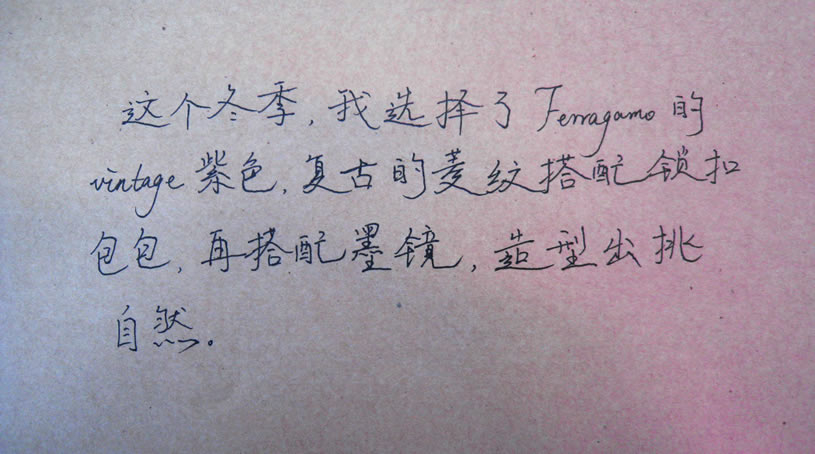 这个冬季,我选择了Ferragamo的
vintage紫色,复古的菱纹搭配锁扣
包包,再搭配墨镜,造型出挑
自然。